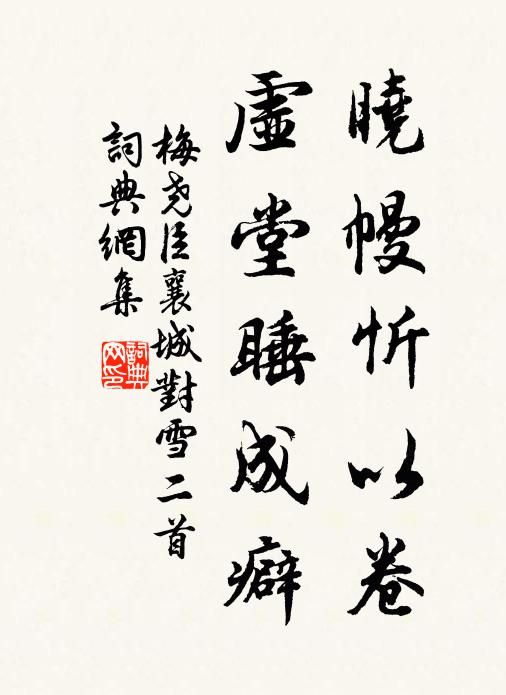 曉幔忻以卷
虛堂睡成癖
梅尧臣襄城對雪二首
詞典網集
詞典网印